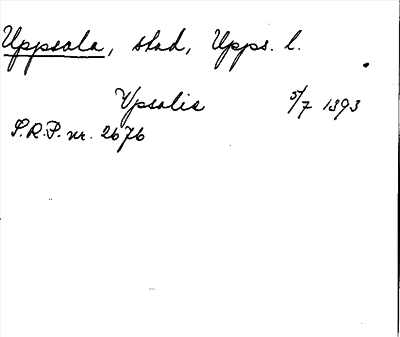 Uppsala, stad, Upps. l.
Upsalis 5/7 1393
S.R.P. nr. 2676